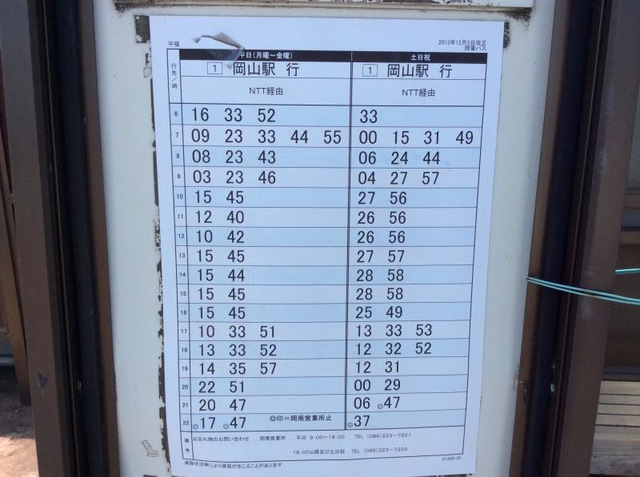 平福
2013年12月5日改正
岡電バス
行先／時 平日(月曜～金曜) 土日祝
1 岡山駅 行 1 岡山駅 行
NTT経由 NTT経由
6 16 33 52 33
7 09 23 33 44 55 00 15 31 49
8 08 23 43 06 24 44
9 03 23 46 04 27 57
10 15 45 27 56
11 12 40 26 56
12 10 42 26 56
13 15 45 27 57
14 15 44 28 58
15 15 45 28 58
16 15 45 25 49
17 10 33 51 13 33 53
18 13 33 52 12 32 52
19 14 35 57 12 31
20 22 51 00 29
21 20 47 ◎印=岡南営業所止 06 ◎47
22 ◎17 ◎47 ◎37
備考 お忘れ物のお問い合わせ 岡南営業所 平日 9:00～18:00 TEL (086)223-7221
18:00以降及び土日祝 TEL (086)223-7222
道路状況等により遅延が生じることがあります